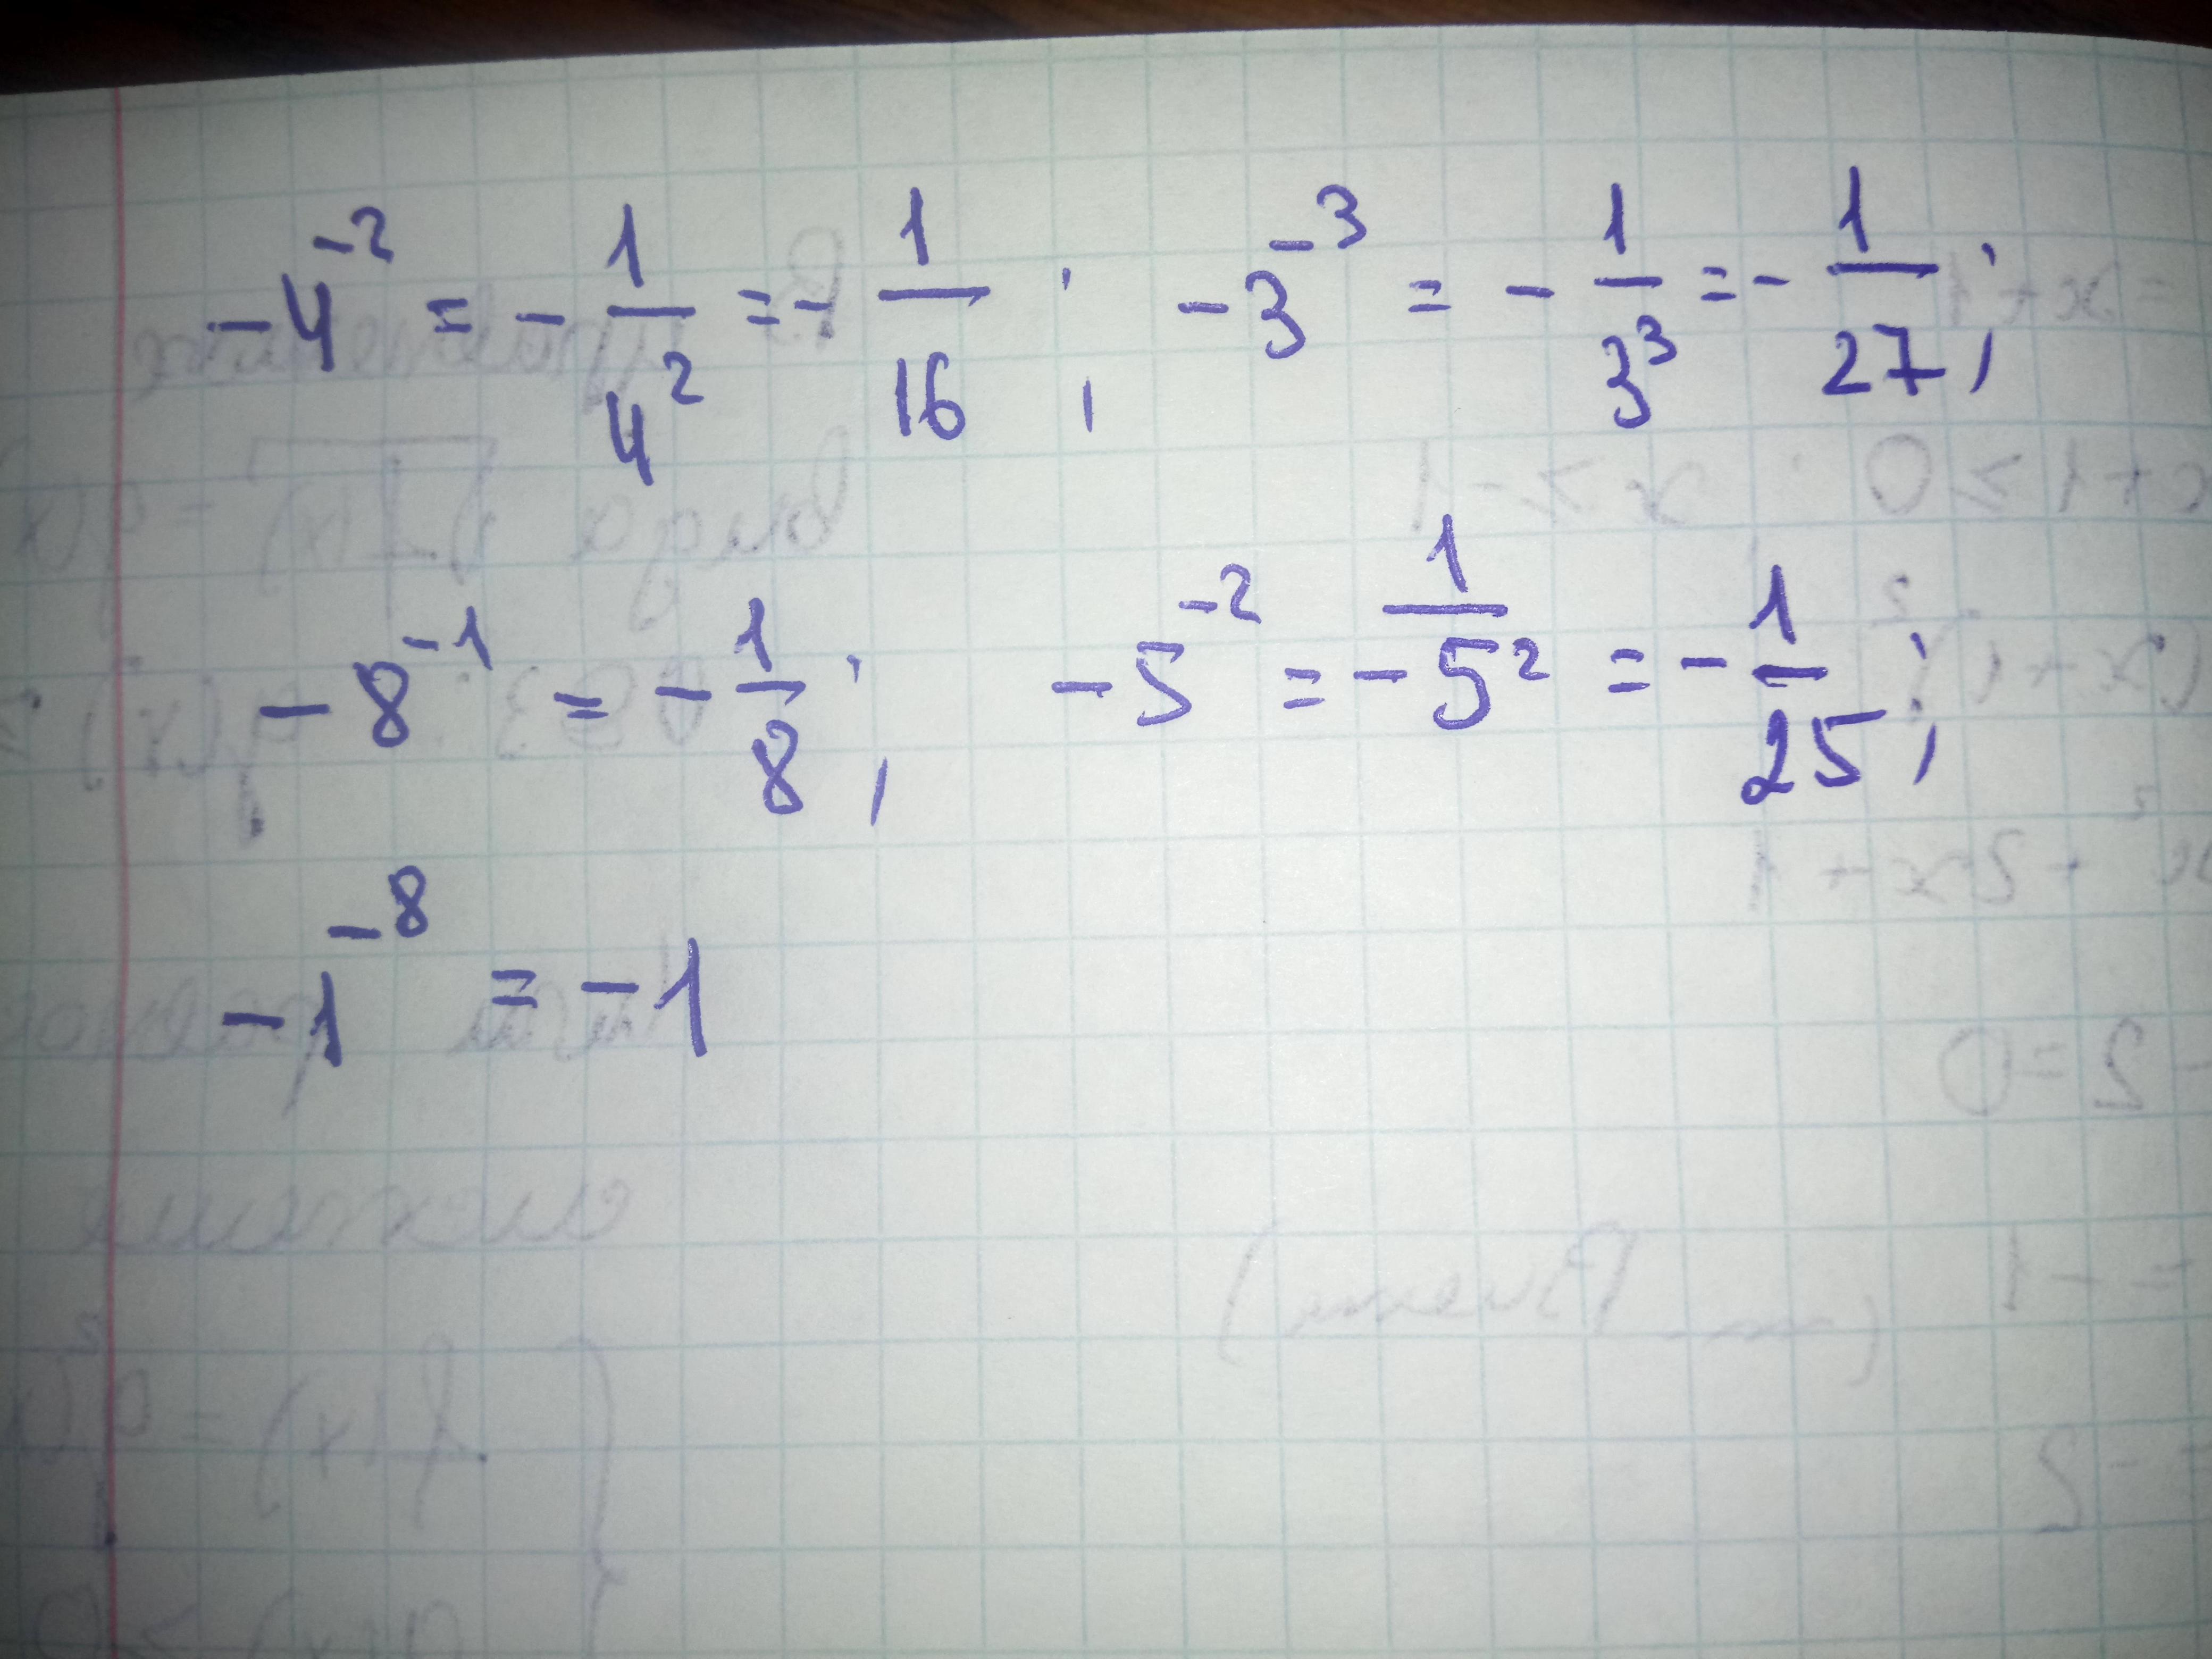 -4^{-2} = -\frac{1}{4^2} = -\frac{1}{16}; -3^{-3} = -\frac{1}{3^3} = -\frac{1}{27};
-8^{-1} = -\frac{1}{8}; -5^{-2} = -\frac{1}{5^2} = -\frac{1}{25};
-1^{-8} = -1